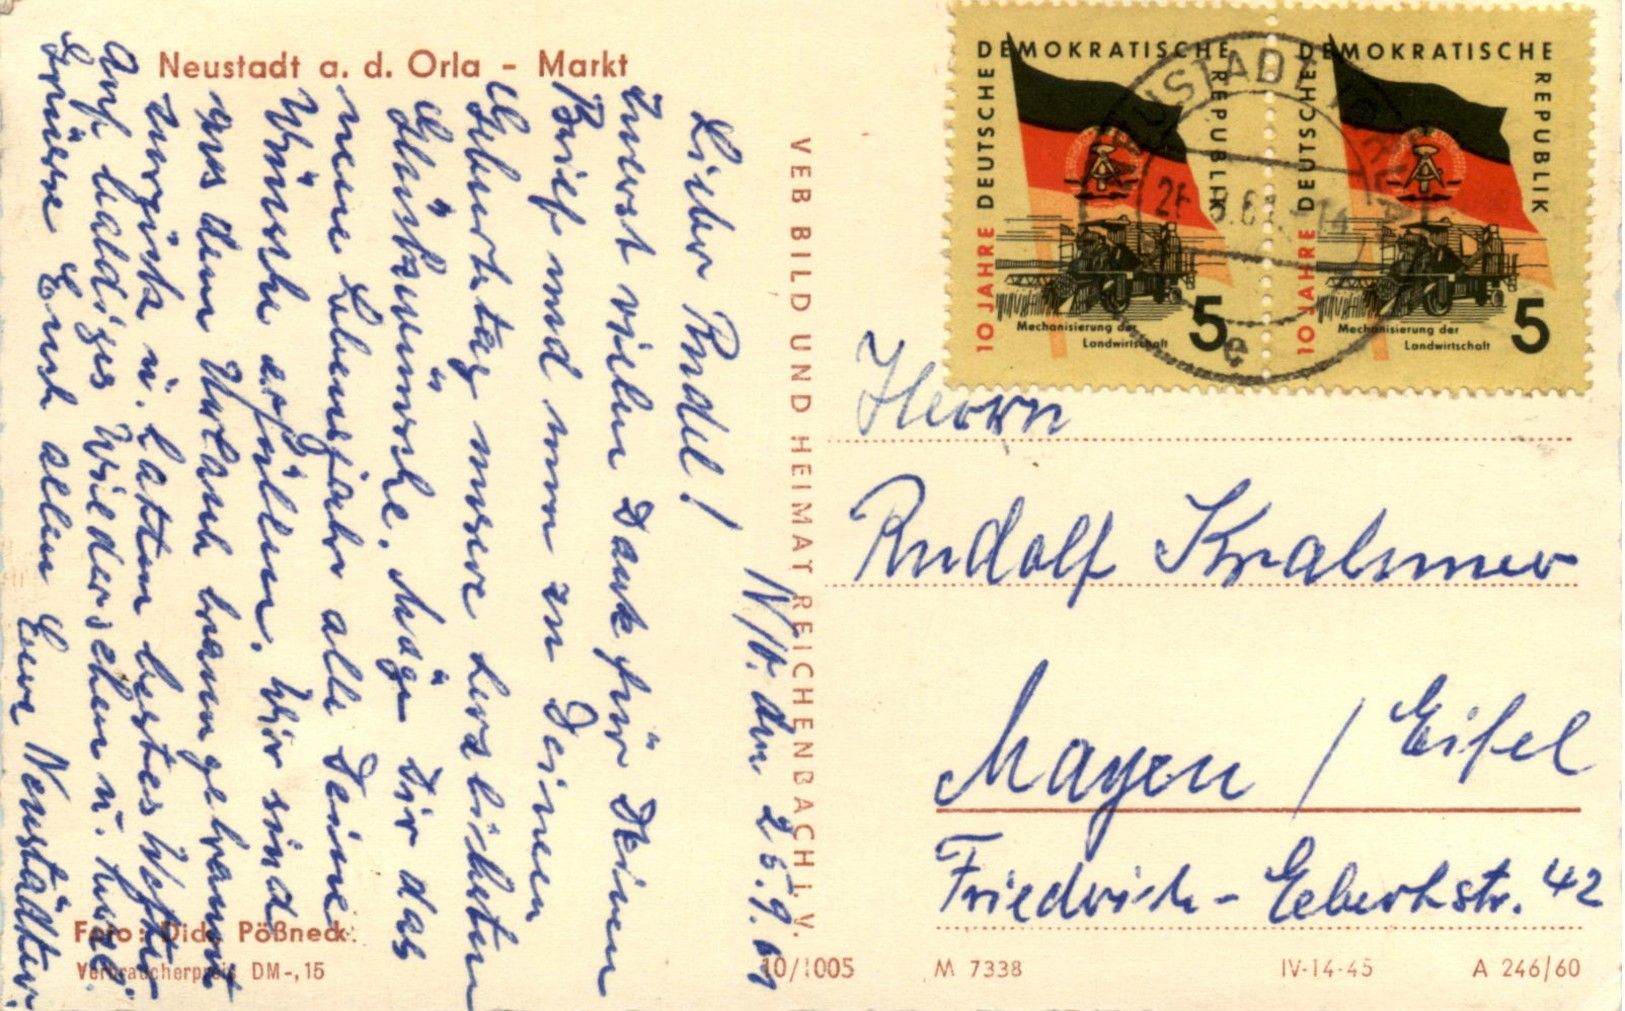 Neustadt a. d. Orla - Markt
N/O. den 25.9.61
Lieber Rudel!
Zuerst vielen Dank für Deinen
Brief und nun zu Deinen
Geburtstag unsere herzlichsten
Glückwünsche. Möge Dir das
neue Lebensjahr alle Deine
Wünsche erfüllen. Wir sind
aus dem Urlaub braungebrannt
zurück u. hatten bestes Wetter
Auf baldiges Wiedersehen u. herzl.
Grüsse Euch allen Eure Neustädter.
Foto: Dick, Pößneck
Verbraucherpreis DM -,15
VEB BILD UND HEIMAT REICHENBACH I. V.
10/1005
M 7338
IV-14-45
A 246/60
10 JAHRE DEUTSCHE DEMOKRATISCHE REPUBLIK
Mechanisierung der
Landwirtschaft
5
10 JAHRE DEUTSCHE DEMOKRATISCHE REPUBLIK
Mechanisierung der
Landwirtschaft
5
NEUSTADT (ORLA)
e
Herrn
Rudolf Kralsmer
Mayen / Eifel
Friedrich-Ebertstr. 42